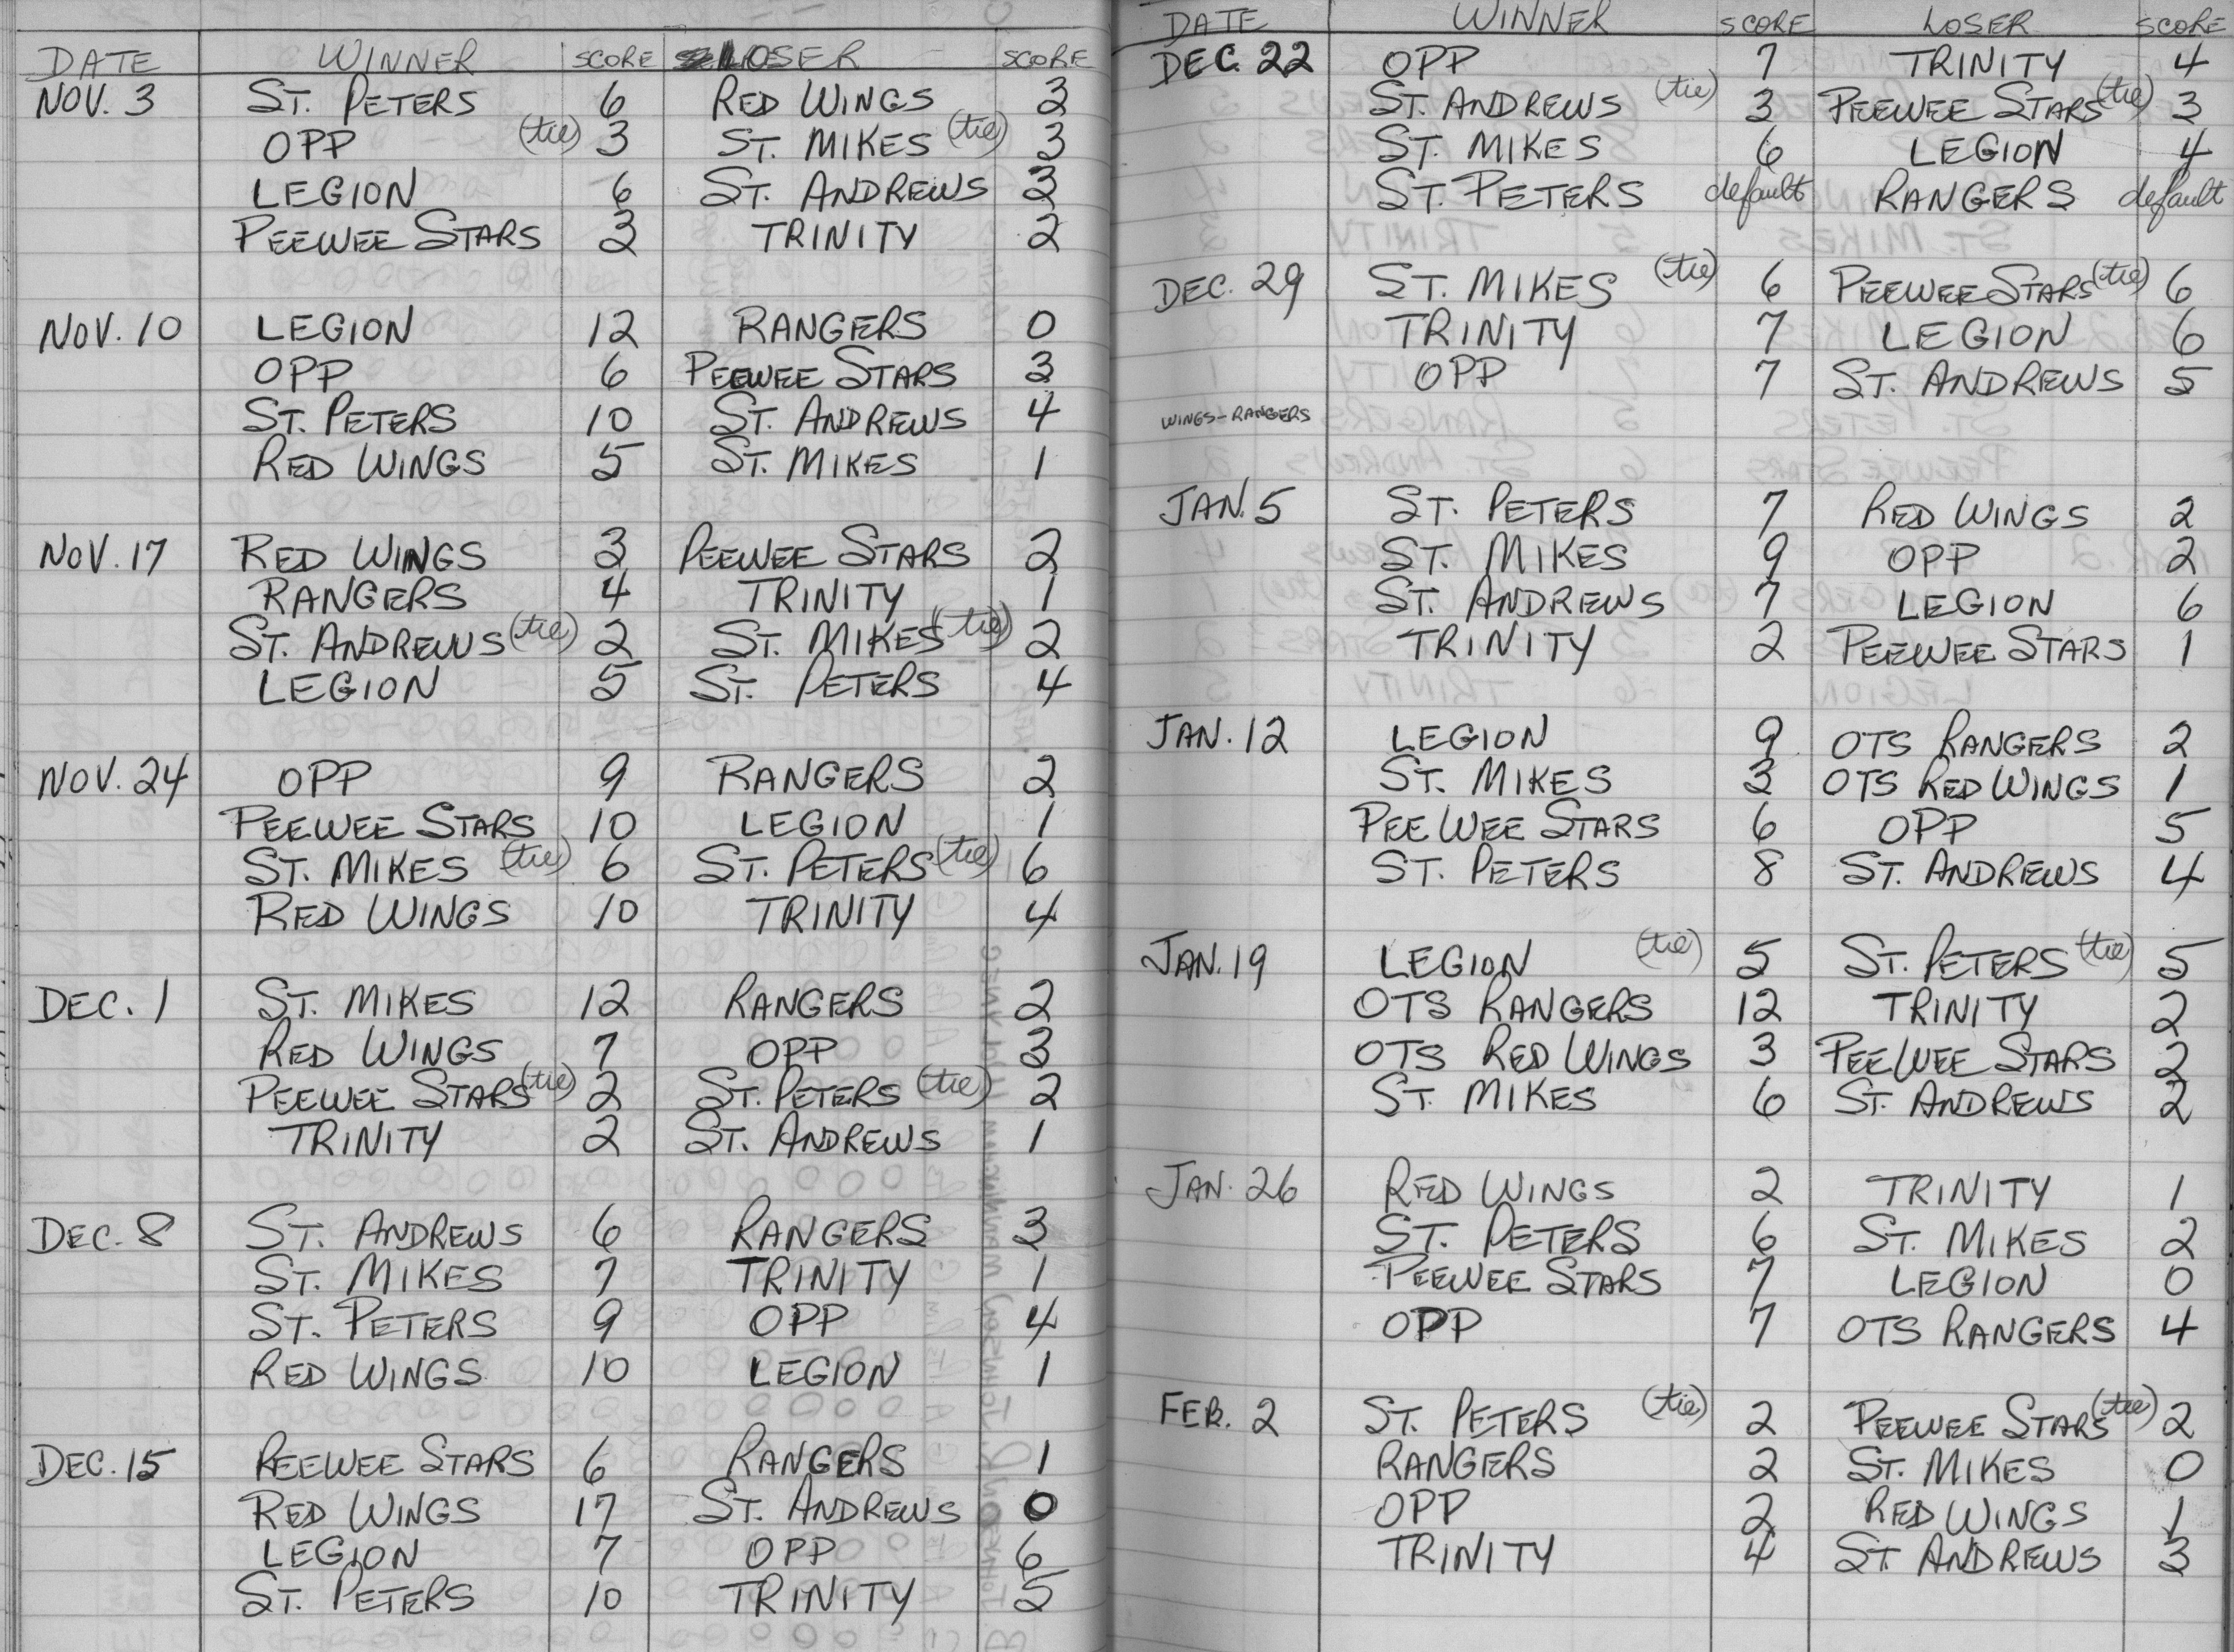 DATE WINNER SCORE LOSER SCORE
NOV. 3 ST. PETERS 6 RED WINGS 3
OPP (tie) 3 ST. MIKES (tie) 3
LEGION 6 ST. ANDREWS 3
PEEWEE STARS 3 TRINITY 2
NOV. 10 LEGION 12 RANGERS 0
OPP 6 PEEWEE STARS 3
ST. PETERS 10 ST. ANDREWS 4
RED WINGS 5 ST. MIKES 1
NOV. 17 RED WINGS 3 PEEWEE STARS 2
RANGERS 4 TRINITY 1
ST. ANDREWS (tie) 2 ST. MIKES (tie) 2
LEGION 5 ST. PETERS 4
NOV. 24 OPP 9 RANGERS 2
PEEWEE STARS 10 LEGION 1
ST. MIKES (tie) 6 ST. PETERS (tie) 6
RED WINGS 10 TRINITY 4
DEC. 1 ST. MIKES 12 RANGERS 2
RED WINGS 7 OPP 3
PEEWEE STARS (tie) 2 ST. PETERS (tie) 2
TRINITY 2 ST. ANDREWS 1
DEC. 8 ST. ANDREWS 6 RANGERS 3
ST. MIKES 7 TRINITY 1
ST. PETERS 9 OPP 4
RED WINGS 10 LEGION 1
DEC. 15 PEEWEE STARS 6 RANGERS 1
RED WINGS 17 ST. ANDREWS 0
LEGION 7 OPP 6
ST. PETERS 10 TRINITY 5
DATE WINNER SCORE LOSER SCORE
DEC. 22 OPP 7 TRINITY 4
ST. ANDREWS (tie) 3 PEEWEE STARS (tie) 3
ST. MIKES 6 LEGION 4
ST. PETERS default RANGERS default
DEC. 29 ST. MIKES (tie) 6 PEEWEE STARS (tie) 6
TRINITY 7 LEGION 6
OPP 7 ST. ANDREWS 5
WINGS-RANGERS
JAN. 5 ST. PETERS 7 RED WINGS 2
ST. MIKES 9 OPP 2
ST. ANDREWS 7 LEGION 6
TRINITY 2 PEEWEE STARS 1
JAN. 12 LEGION 9 OTS RANGERS 2
ST. MIKES 3 OTS RED WINGS 1
PEEWEE STARS 6 OPP 5
ST. PETERS 8 ST. ANDREWS 4
JAN. 19 LEGION (tie) 5 ST. PETERS (tie) 5
OTS RANGERS 12 TRINITY 2
OTS RED WINGS 3 PEEWEE STARS 2
ST. MIKES 6 ST. ANDREWS 2
JAN. 26 RED WINGS 2 TRINITY 1
ST. PETERS 6 ST. MIKES 2
PEEWEE STARS 7 LEGION 0
OPP 7 OTS RANGERS 4
FEB. 2 ST. PETERS (tie) 2 PEEWEE STARS (tie) 2
RANGERS 2 ST. MIKES 0
OPP 2 RED WINGS 1
TRINITY 4 ST. ANDREWS 3